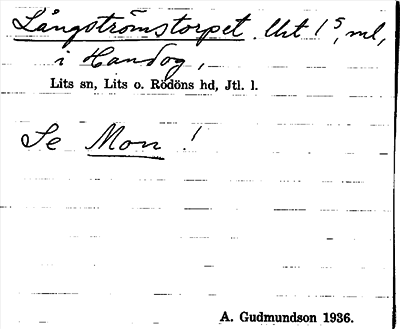 Långströmstorpet. Urt 1⁵, ml,
i Handog,
Lits sn, Lits o. Rödöns hd, Jtl. l.
Se Mon!
A. Gudmundson 1936.